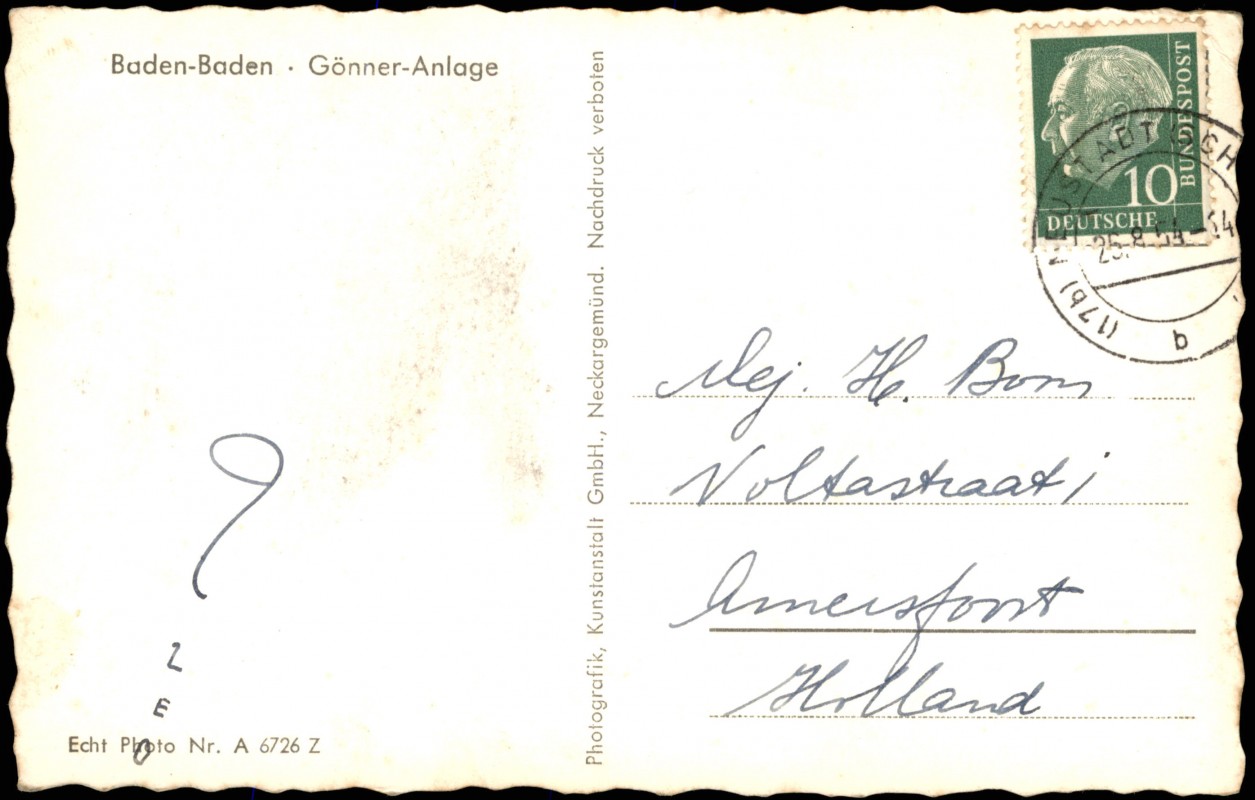 Baden-Baden · Gönner-Anlage
Echt Photo Nr. A 6726 Z
Photografik, Kunstanstalt GmbH., Neckargemünd. Nachdruck verboten
BUNDESPOST
10
DEUTSCHE
(17b) NEUSTADT (SCH
25.8.54-14
b
Mej. H. Bom
Voltastraat 1
Amersfoort
Holland